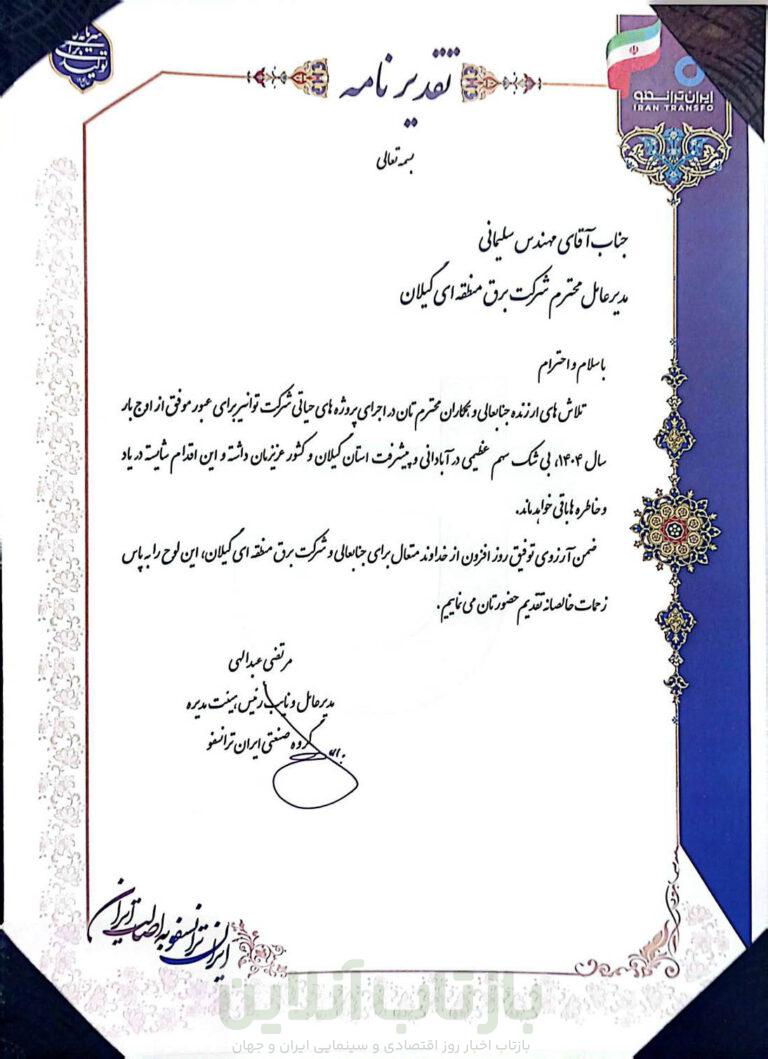 تقدیرنامه
ایران ترانسفو
IRAN TRANSFO
بسمه تعالی
جناب آقای مهندس سلیمانی
مدیرعامل محترم شرکت برق منطقه ای گیلان
با سلام و احترام
تلاش های ارزنده جنابعالی و همکاران محترم تان در اجرای پروژه های حیاتی شرکت توانیر برای عبور موفق از اوج بار
سال ۱۴۰۴، بی شک سهم عظیمی در آبادانی و پیشرفت استان گیلان و کشور عزیزمان داشته و این اقدام شایسته در یاد
و خاطره ها باقی خواهد ماند.
ضمن آرزوی توفیق روز افزون از خداوند متعال برای جنابعالی و شرکت برق منطقه ای گیلان، این لوح را به پاس
زحمات خالصانه تقدیم حضورتان می نماییم.
مرتضی عبدالهی
مدیرعامل و نایب رئیس هیئت مدیره
گروه صنعتی ایران ترانسفو
ایران ترانسفو به اصالت ایران
بازتاب آنلاین
بازتاب اخبار روز اقتصادی و سینمایی ایران و جهان